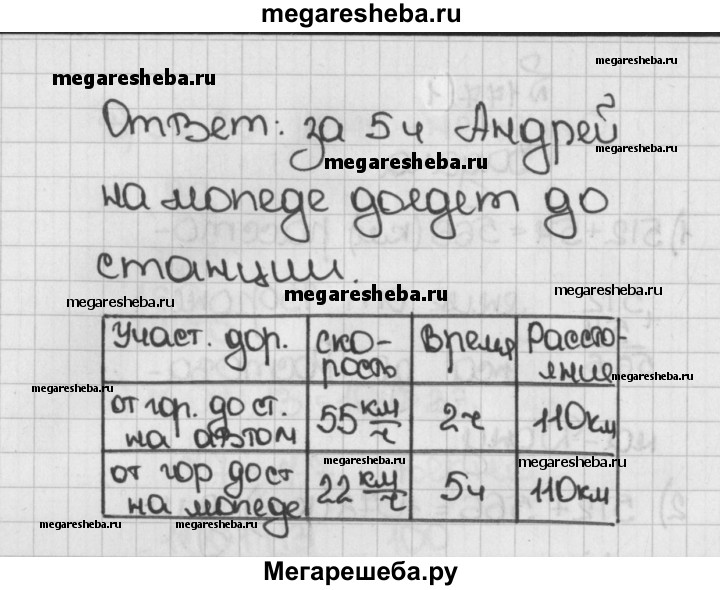 megaresheba.ru
megaresheba.ru
megaresheba.ru
Ответ: за 5ч Андрей
megaresheba.ru
megaresheba.ru
на мопеде доедет до
станции.
megaresheba.ru
megaresheba.ru
megaresheba.ru
Участ. дор. | ско-рость | Время | Рассто-яние
megaresheba.ru
megaresheba.ru
от гор. до ст. на автом | 55 км/ч | 2ч | 110км
megaresheba.ru
megaresheba.ru
от гор до ст на мопеде | 22 км/ч | 5ч | 110км
megaresheba.ru
megaresheba.ru
megaresheba.ru
Мегарешеба.ру